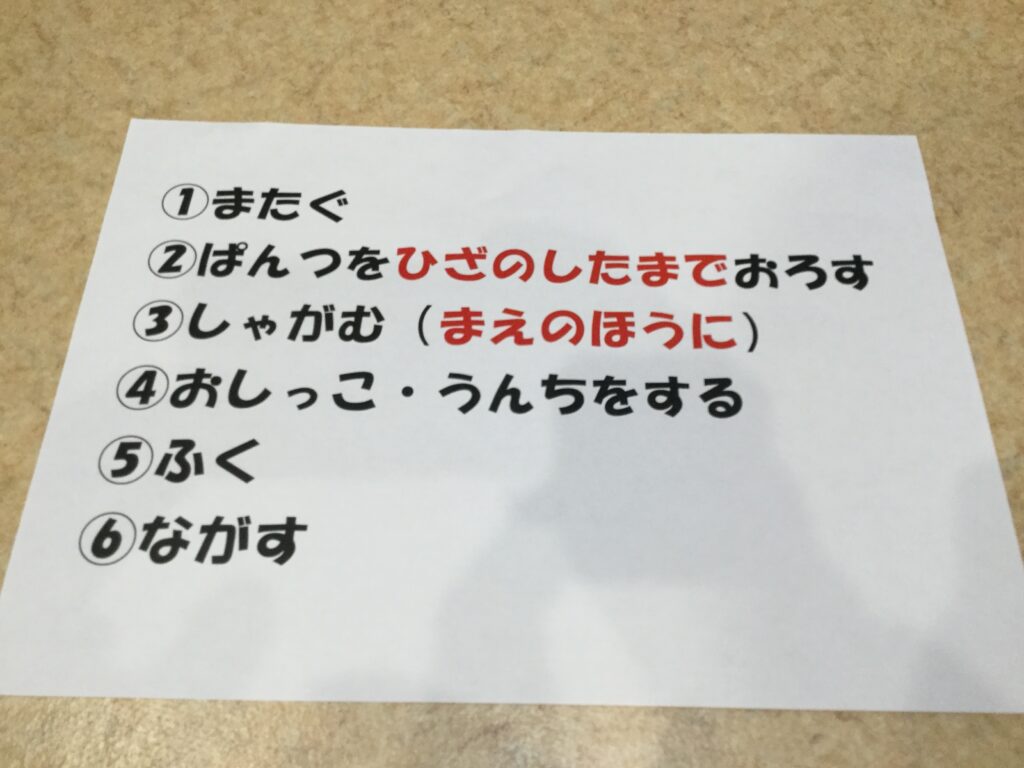 ①またぐ
②ぱんつをひざのしたまでおろす
③しゃがむ（まえのほうに）
④おしっこ・うんちをする
⑤ふく
⑥ながす